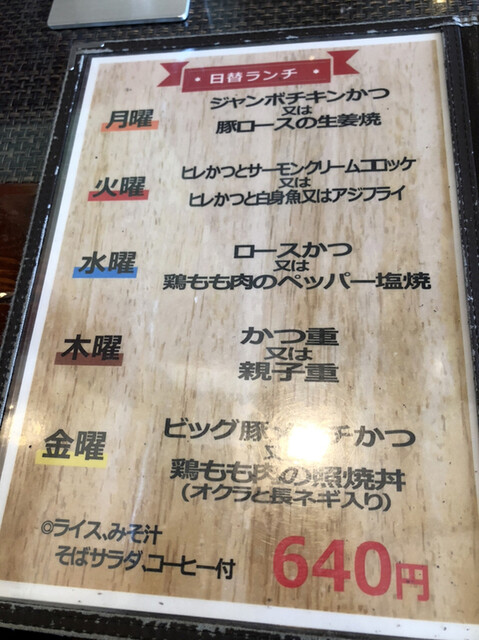 日替ランチ
月曜
ジャンボチキンかつ
又は
豚ロースの生姜焼
火曜
ヒレかつとサーモンクリームコロッケ
又は
ヒレかつと白身魚又はアジフライ
水曜
ロースかつ
又は
鶏もも肉のペッパー塩焼
木曜
かつ重
又は
親子重
金曜
ビッグ豚 チかつ
鶏もも肉の照焼丼
(オクラと長ネギ入り)
◎ライス、みそ汁
そばサラダ、コーヒー付
640円